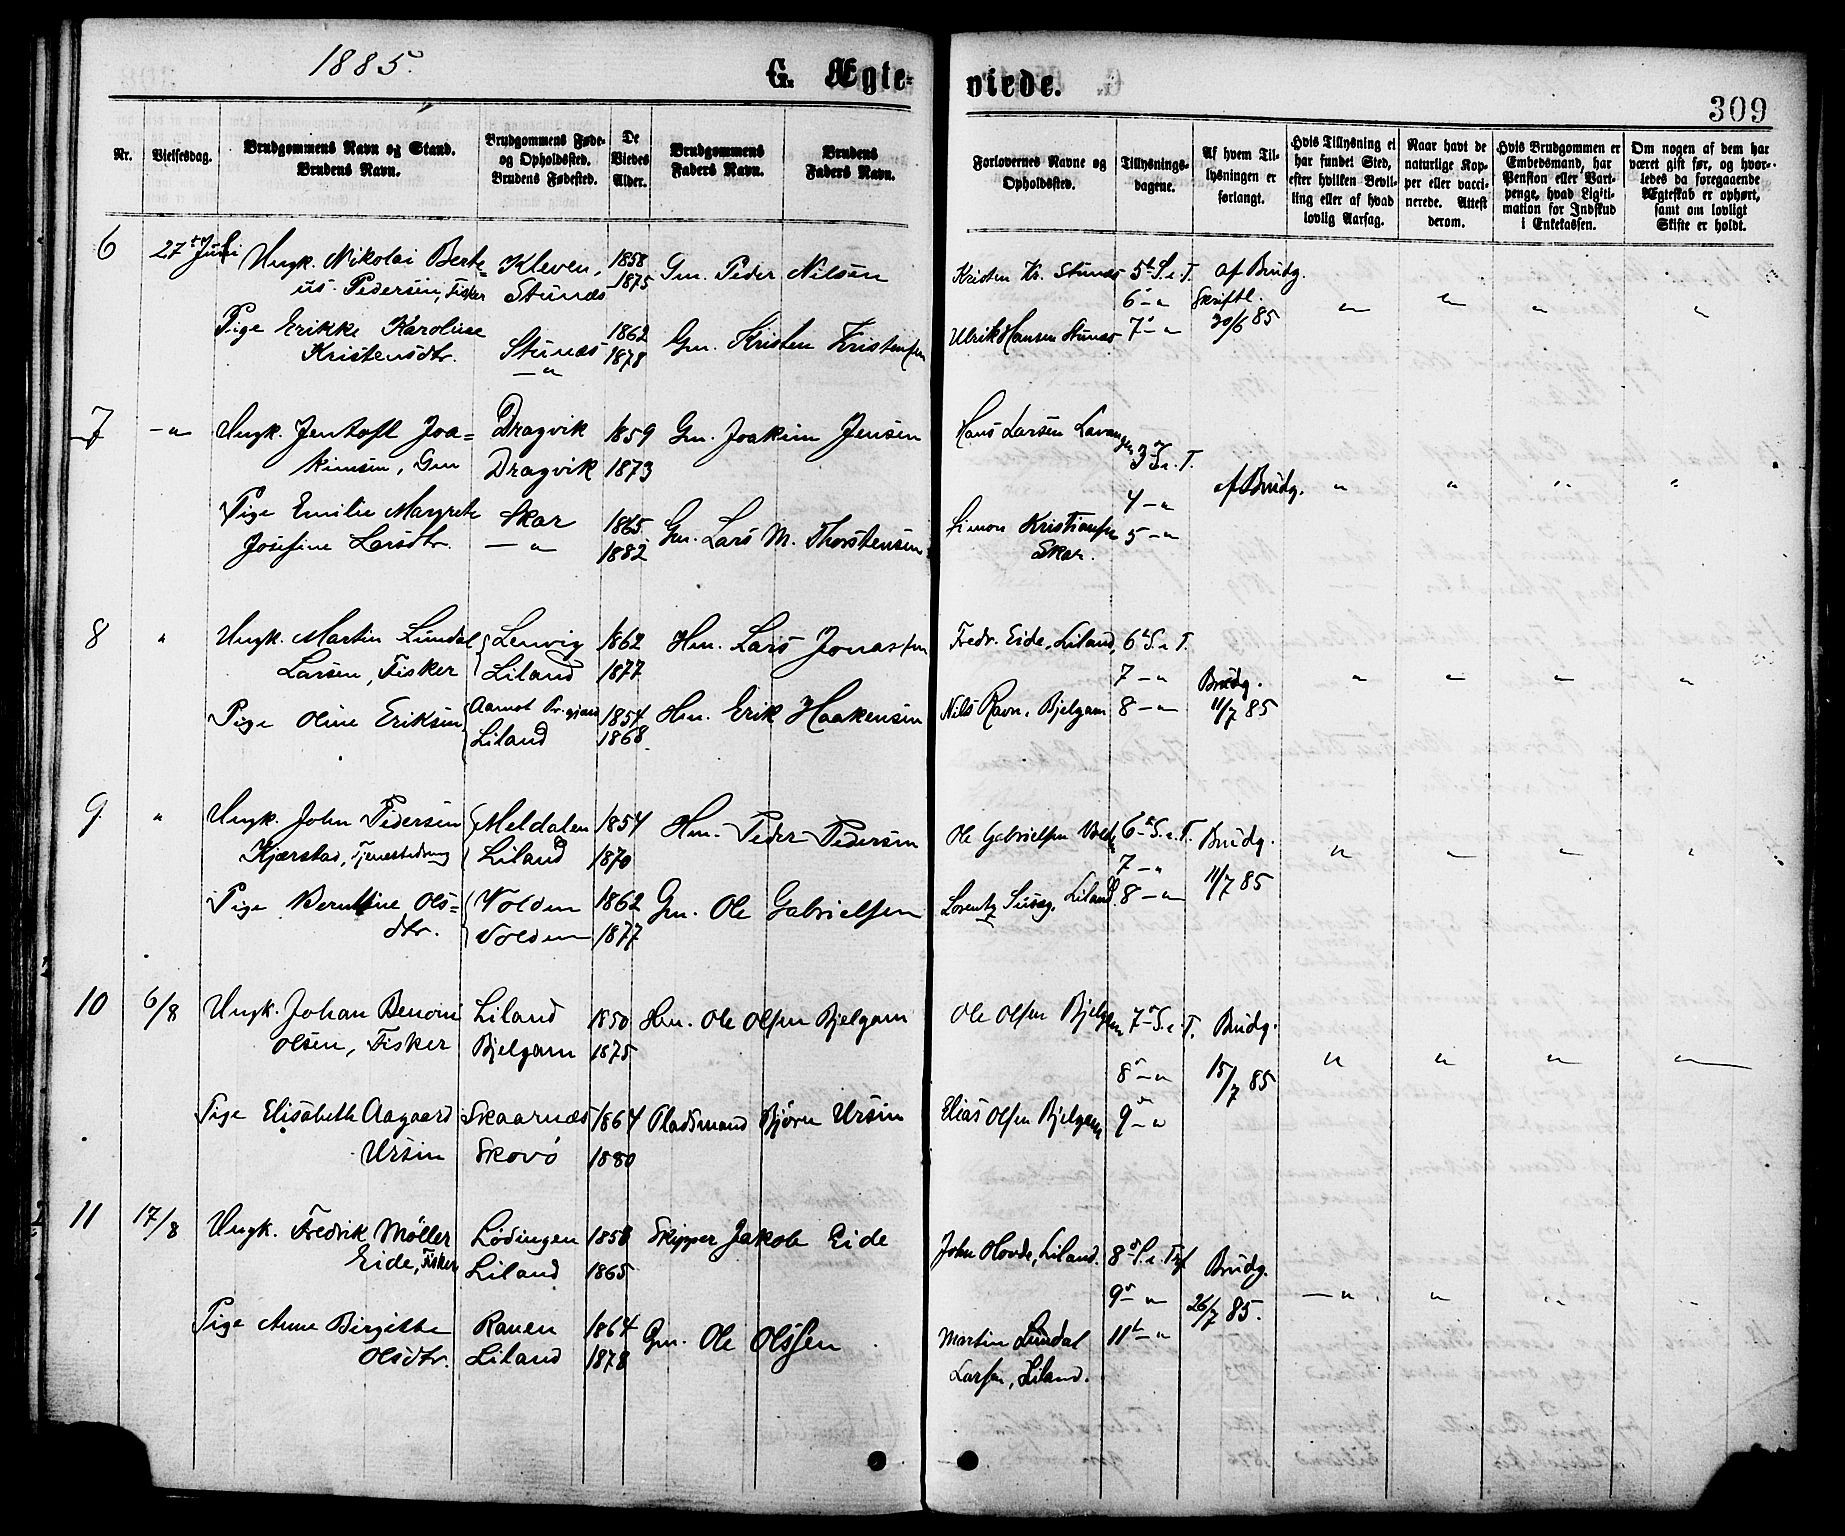 1885.
G. Ægte-
viede.
309
Nr.
Vielsesdag.
Brudgommens Navn og Stand.
Brudens Navn.
Brudgommens Føde-
og Opholdssted.
Brudens Fødested.
De
Viedes
Alder.
Brudgommens
Faders Navn.
Brudens
Faders Navn.
Forlovernes Navne og
Opholdssted.
Tillysnings-
dagene.
Af hvem Til-
lysningen er
forlangt.
Hvis Tillysning ei
har fundet Sted,
efter hvilken Bevil-
ling eller af hvad
lovlig Aarsag.
Naar havt de
naturlige Kop-
per eller vacci-
nerede. Attest
derom.
Hvis Brudgommen er
Embedsmand, har
Pension eller Vart-
penge, hvad Ligiti-
mation for Indskud
i Enkekassen.
Om nogen af dem har
været gift før, og hvor-
ledes da foregaaende
Ægteskab er ophørt,
samt om lovligt
Skifte er holdt.
6 27de Juli Ungk. Nikolai Berte- Kleven, 1858 Gm. Peder Nilsen Kristen Kr. Stunes 5te S. e. T. af Brudg.
us Pedersen, Fisker Stunes 1875 6 " Skriftl.
Pige Erikke Karoline Stunes 1862 Gm. Kristen Kristensen Ulrik Hansen Stunes 7 " 30/6 85 " " " "
Kristensdtr. " 1878
7 " Ungk. Jentoft Joa= Dragvik 1859 Gm. Joakim Jensen Hans Larsen Lavangen 3 S. e. T.
kimsen, Gm Dragvik 1873 4 " af Brudg. " " " "
Pige Emilie Margrete Skar 1865 Gm. Lars M. Thorstensen Simon Kristiansen 5 "
Josefine Larsdtr. " 1882 Skar.
8 " Ungk. Martin Lundal Lenvig 1862 Hm. Lars Jonassen Fredr. Eide, Liland, 6 S. e. T.
Larsen, Fisker Liland 1877 7 " Brudg. " " " "
Pige Oline Eriksen Aamot Pr.gjæld 1854 Hm. Erik Haakensen Nils Ravn, Bjelgam 8 " 11/7 85
Liland 1868
9 " Ungk. John Pedersen Meldalen 1854 Hm. Peder Pedersen Ole Gabrielsen Volden 6 S. e. T. Brudg.
Kjærstad, Liland 1870 7 " " " " "
Pige Berntine Ols= Volden 1862 Gm. Ole Gabrielsen Lorentz Liland 8 " 11/7 85
dtr. Volden 1877
10 6/8 Ungk. Johan Benoni Liland 1850 Hm. Ole Olsen Bjelgam Ole Olsen Bjelgam 7 S. e. T. Brudg.
Olsen, Fisker Bjelgam 1875 8 " 15/7 85 " " " "
Pige Elisabeth Aagaard Skaarnæs 1864 Pladsmand Bjørn Ursin Elias Olsen Bjelgam 9 "
Ursin Skovö 1880
11 17/8 Ungk. Fredrik Møller Lødingen 1850 Skipper Jakob Eide John Hovde, Liland. 8 S. e. Tr. Brudg.
Eide, Fisker Liland 1865 9 " 26/7 85. " " "
Pige Anne Birgitte Ranen 1864 Gm. Ole Olssen Martin Lundal 11 "
Olsdtr. Liland 1878 Larsen, Liland.